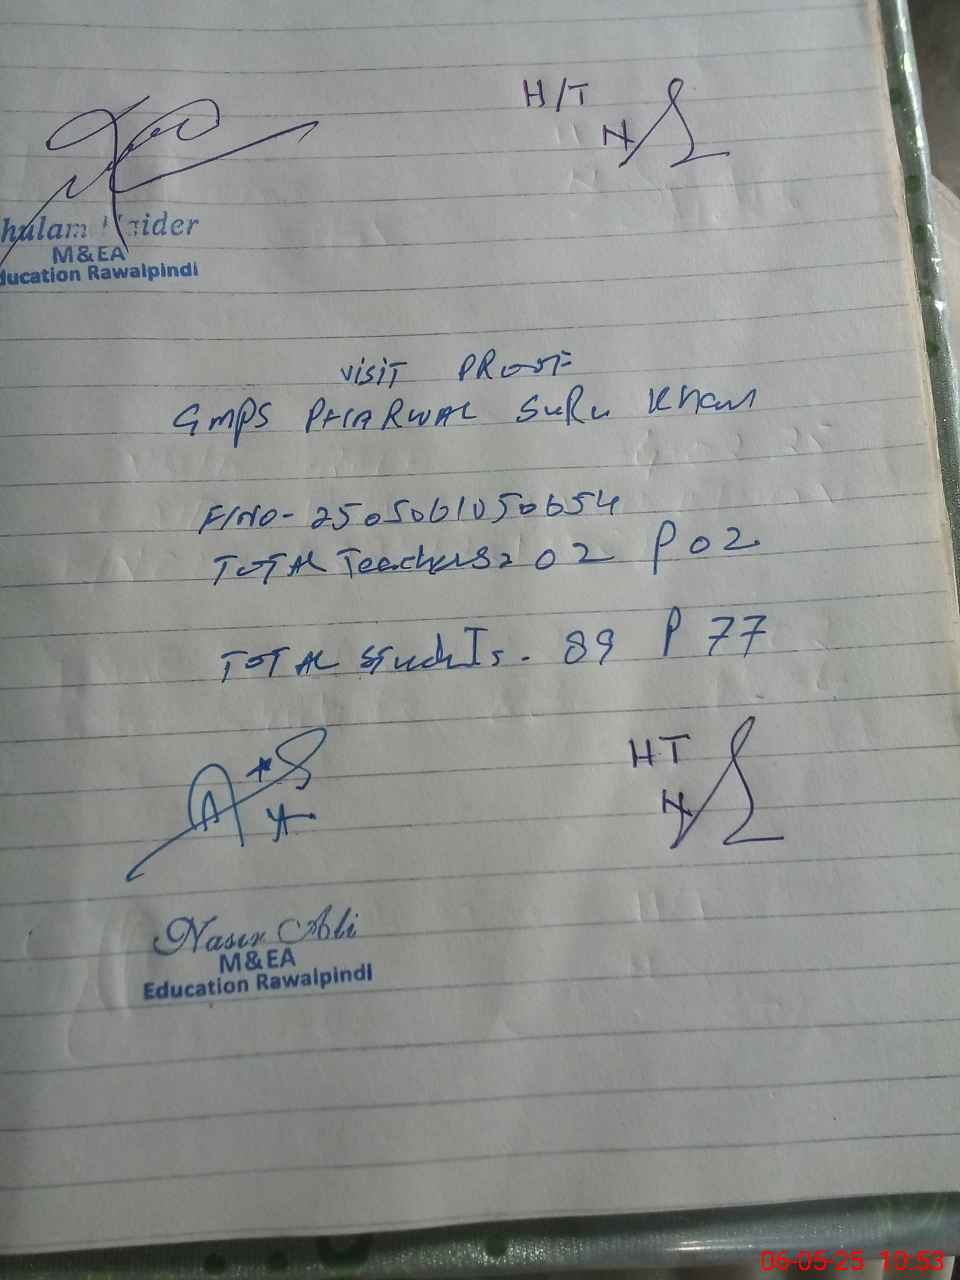 H/T
Haider
M&EA
Education Rawalpindi
visit PROOF
GMPS PHARWAL SuRu Khan
F/NO- 2505061050654
TOTAL Teachers= 02 P 02
TOTAL students. 89 P 77
HT
Nasir Ali
M&EA
Education Rawalpindi
06-05-25 10:53